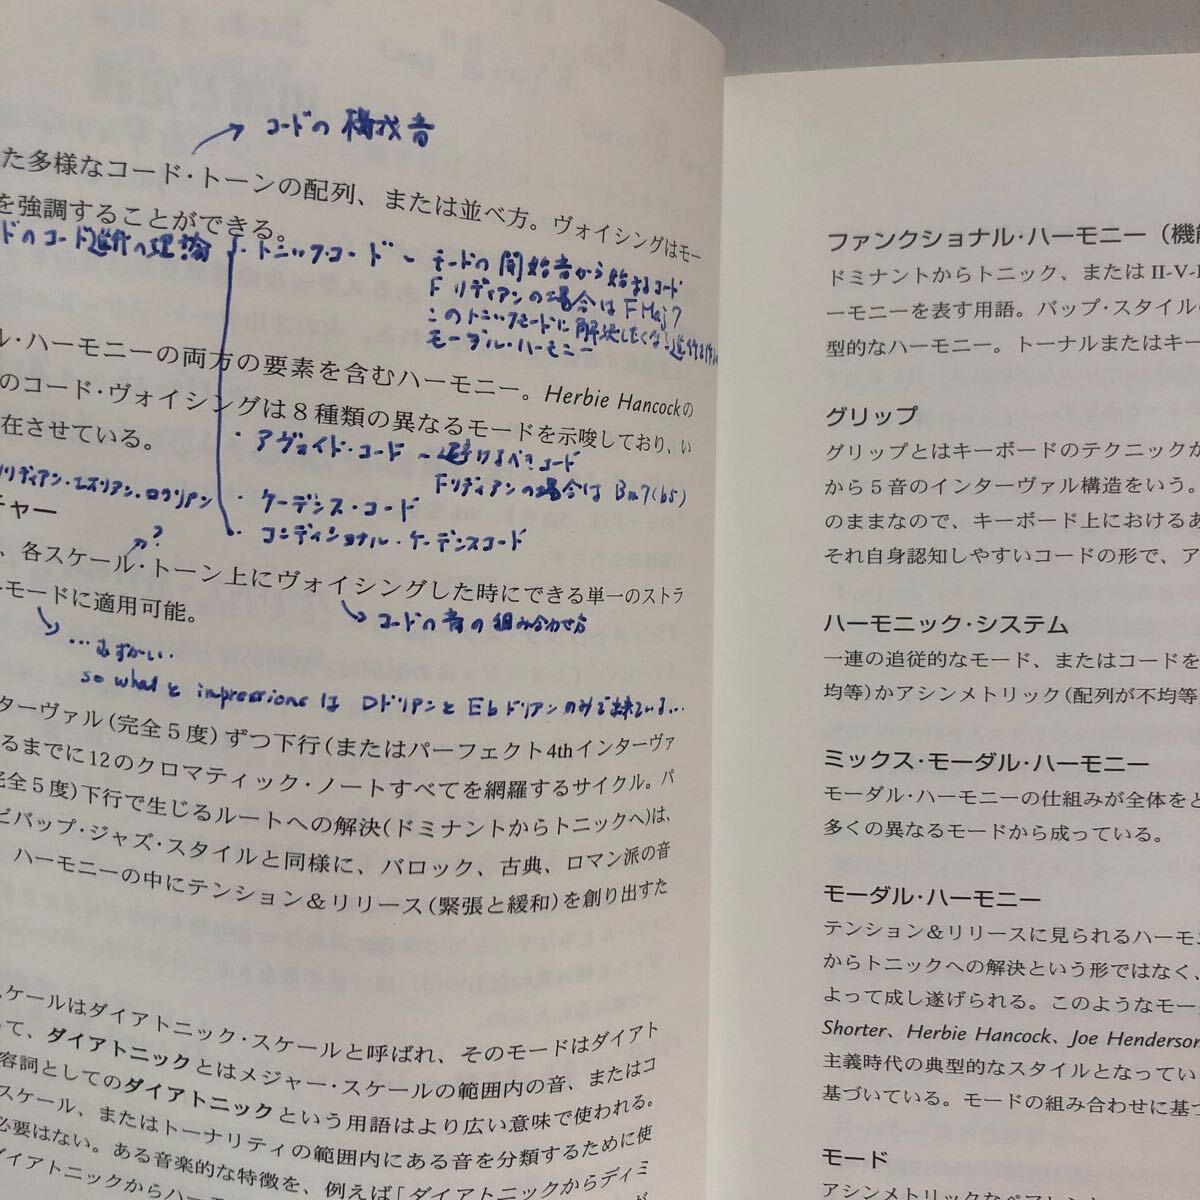 コードの構成音
た多様なコード・トーンの配列、または並べ方。ヴォイシングはモー
を強調することができる。
ドのコード進行の理論
・トニック・コード ~ モードの開始音から始まるコード
F リディアンの場合は FMaj7
このトニックモードに解決したくなる進行を作る
モーダル・ハーモニー
ル・ハーモニーの両方の要素を含むハーモニー。Herbie Hancockの
のコード・ヴォイシングは8種類の異なるモードを示唆しており、い
在させている。
・アヴォイド・コード ~避けるべきコード
Fリディアンの場合は Bm7(b5)
リディアン・エオリアン・ロクリアン
・ケーデンス・コード
チャー
・コンディショナル・ケーデンスコード
?
、各スケール・トーン上にヴォイシングした時にできる単一のストラ
モードに適用可能。
コードの音の組み合わせ方
…むずかしい..
so whatと impressionsは DドリアンとEbドリアンのみで出来ている…
ターヴァル(完全5度)ずつ下行(またはパーフェクト4thインターヴァ
るまでに12のクロマティック・ノートすべてを網羅するサイクル。パ
完全5度)下行で生じるルートへの解決(ドミナントからトニックへ)は、
ビバップ・ジャズ・スタイルと同様に、バロック、古典、ロマン派の音
ハーモニーの中にテンション&リリース(緊張と緩和)を創り出すた
スケールはダイアトニック・スケールと呼ばれ、そのモードはダイアト
って、ダイアトニックとはメジャー・スケールの範囲内の音、またはコ
容詞としてのダイアトニックという用語はより広い意味で使われる。
スケール、またはトーナリティの範囲内にある音を分類するために使
必要はない。ある音楽的な特徴を、例えば「ダイアトニックからディミ
ダイアトニックからハーモ
ファンクショナル・ハーモニー(機能
ドミナントからトニック、または II-V-I
ーモニーを表す用語。バップ・スタイルの
型的なハーモニー。トーナルまたはキー
グリップ
グリップとはキーボードのテクニックか
から5音のインターヴァル構造をいう。
のままなので、キーボード上におけるあ
それ自身認知しやすいコードの形で、ア
ハーモニック・システム
一連の追従的なモード、またはコードを
均等)かアシンメトリック(配列が不均等
ミックス・モーダル・ハーモニー
モーダル・ハーモニーの仕組みが全体をと
多くの異なるモードから成っている。
モーダル・ハーモニー
テンション&リリースに見られるハーモニ
からトニックへの解決という形ではなく、
よって成し遂げられる。このようなモー
Shorter、Herbie Hancock、Joe Henderson
主義時代の典型的なスタイルとなってい
基づいている。モードの組み合わせに基づ
モード
アシンメトリックなペアレント